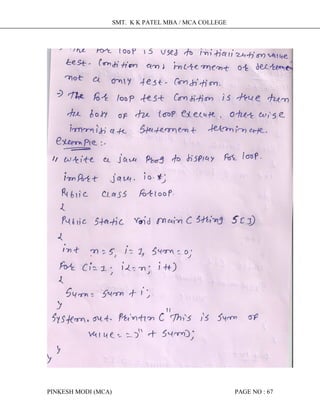 SMT. K K PATEL MBA / MCA COLLEGE
The for loop is used to initialization value,
test-Condition and incremement of decreme
not a only test-Condition.
→ The for loop test Condition is true then
the body of the loop execute, other wise
immidiate Statemment terminate.
example :-
// write a java Prog to display for loop.
import java.io.*;
Public class Forloop
{
Public static void main (String S[])
{
int n=5, i=1, sum=0;
for (i=1; i<=n; i++)
{
Sum= Sum + i;
}
System.out.println ("This is sum of
value = =" + sum);
}
}
PINKESH MODI (MCA) PAGE NO : 67